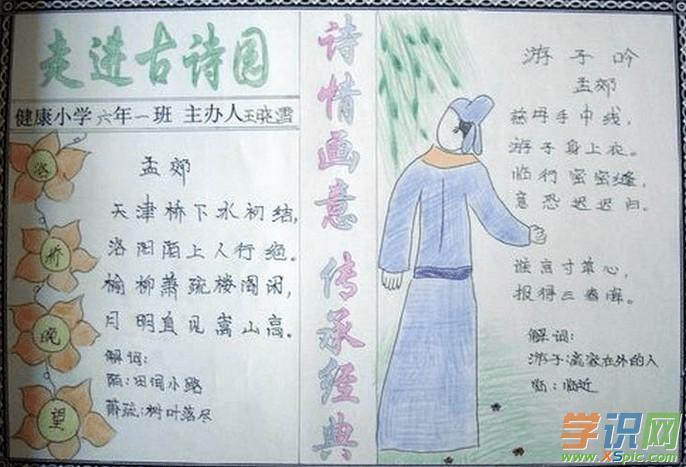 走进古诗园
健康小学六年一班 主办人王晓雪
洛
桥
晚
望
孟郊
天津桥下水初结,
洛阳陌上人行绝。
榆柳萧疏楼阁闲,
月明直见嵩山高。
解词:
陌:田间小路
萧疏:树叶落尽
诗情画意 传承经典
游子吟
孟郊
慈母手中线,
游子身上衣。
临行密密缝,
意恐迟迟归。
谁言寸草心,
报得三春晖。
解词:
游子:离家在外的人
临:临近
学识网
www.XSpic.com